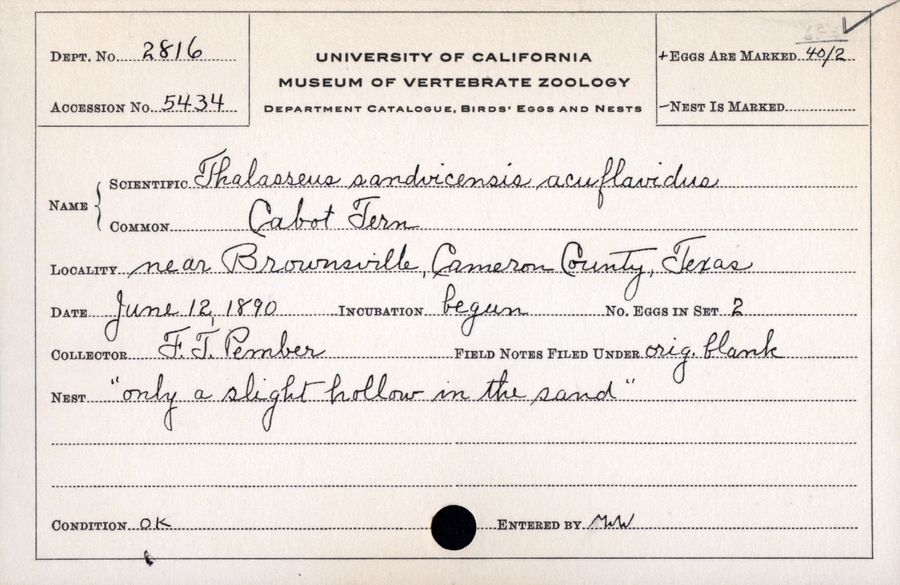 Dept. No. 2816
Accession No. 5434
UNIVERSITY OF CALIFORNIA
MUSEUM OF VERTEBRATE ZOOLOGY
Department Catalogue, Birds' Eggs and Nests
+Eggs Are Marked 40/2
-Nest Is Marked
Name
Scientific Thalasseus sandvicensis acuflavidus
Common Cabot Tern
Locality near Brownsville, Cameron County, Texas
Date June 12, 1890 Incubation begun No. Eggs in Set 2
Collector F. T. Pember Field Notes Filed Under orig. blank
Nest "only a slight hollow in the sand"
Condition OK Entered by